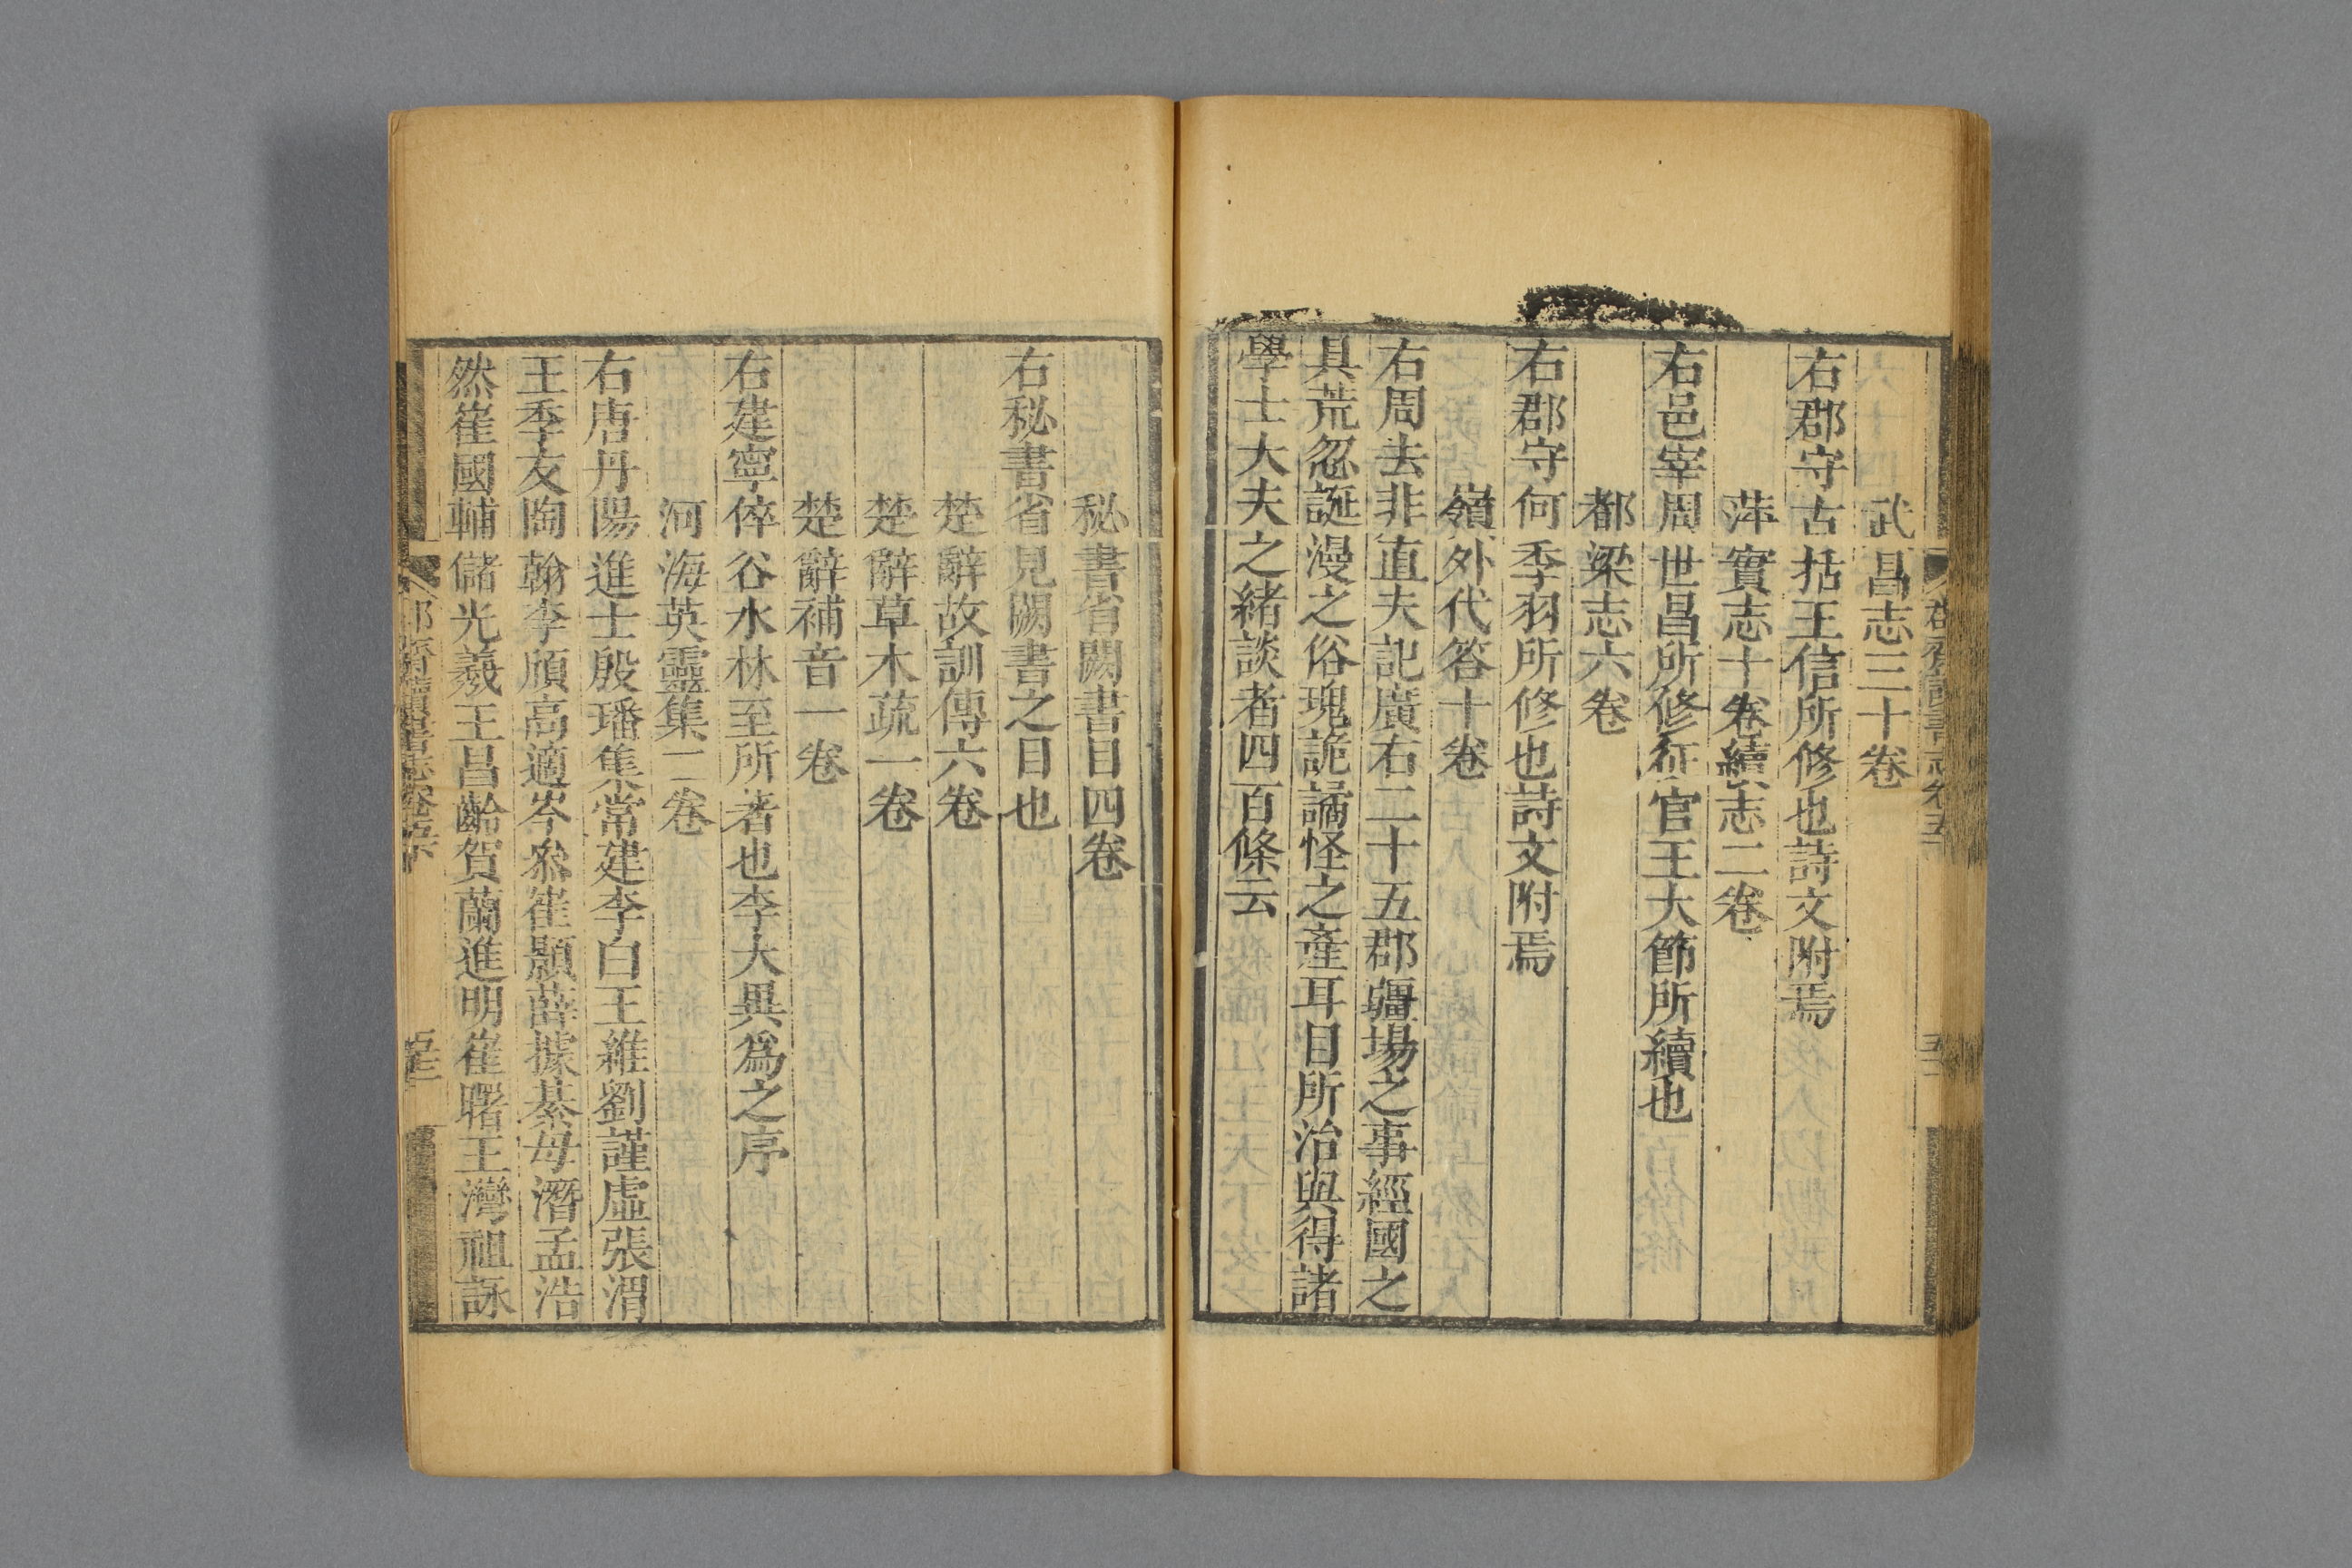 武昌志三十卷
右郡守古括王信所修也詩文附焉
萍實志十卷續志二卷
右邑宰周世昌所修征官王大節所續也
都梁志六卷
右郡守何季羽所修也詩文附焉
嶺外代答十卷
右周去非直夫記廣右二十五郡疆場之事經國之
具荒忽誕漫之俗瑰詭譎怪之產耳目所治與得諸
學士大夫之緒談者四百條云
秘書省闕書目四卷
右秘書省見闕書之目也
楚辭故訓傳六卷
楚辭草木疏一卷
楚辭補音一卷
右建寧倅谷水林至所著也李大異爲之序
河海英靈集二卷
右唐丹陽進士殷璠集常建李白王維劉謹虛張渭
王季友陶翰李頎高適岑叅崔顥薛據綦毋潛孟浩
然崔國輔儲光羲王昌齡賀蘭進明崔曙王灣祖詠